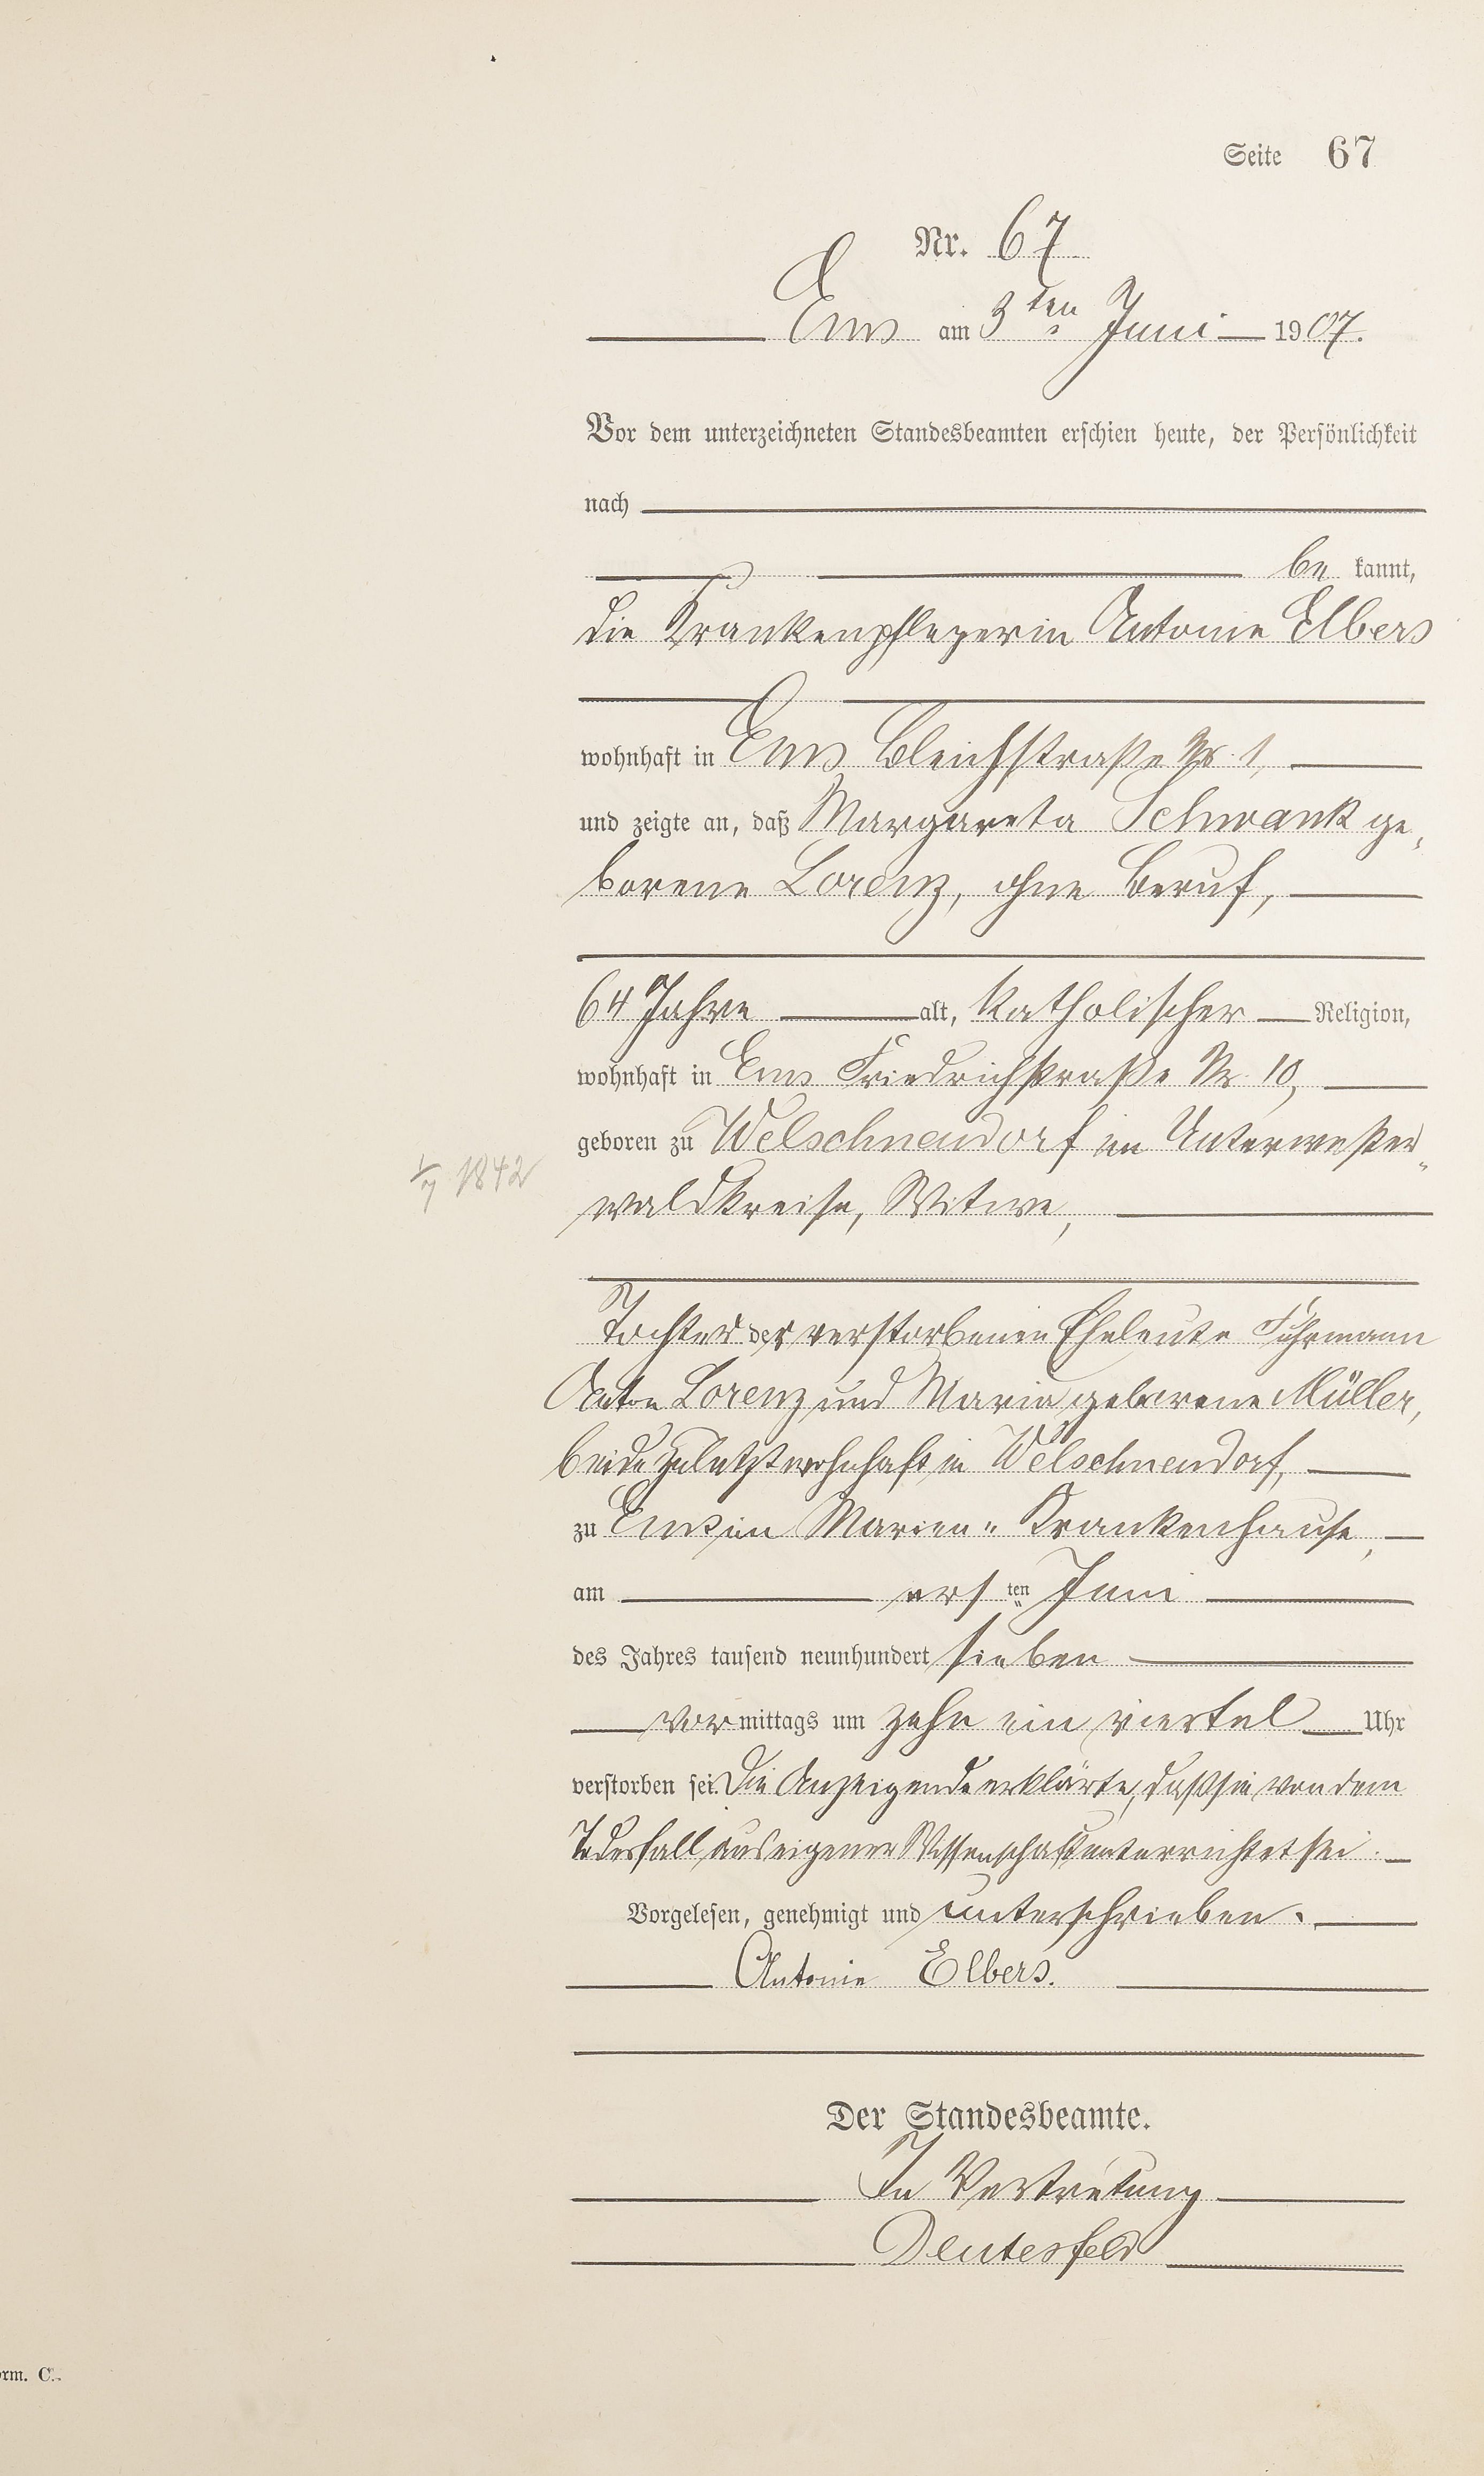 Seite 67
Nr. 67
Ems am 3ten Juni 1907.
Vor dem unterzeichneten Standesbeamten erschien heute, der Persönlichkeit
nach
be kannt,
die Krankenpflegerin Antonie Elbers
wohnhaft in Ems Bleichstraße Nr. 1,
und zeigte an, daß Margareta Schwank ge-
borene Lorenz, ohne Beruf,
64 Jahre alt, katholischer Religion,
wohnhaft in Ems Friedrichstraße Nr. 10,
geboren zu Welschneudorf im Unterwester-
1/7 1842
waldkreise, Witwe,
Tochter der verstorbenen Eheleute Fuhrmann
Anton Lorenz und Maria geborene Müller,
beide zuletzt wohnhaft in Welschneudorf,
zu Ems im Marien-Krankenhause,
am ersten Juni
des Jahres tausend neunhundert sieben
vormittags um zehn ein viertel Uhr
verstorben sei. Die Anzeigende erklärte, daß sie von dem
Todesfall aus eigener Wissenschaft unterrichtet sei.
Vorgelesen, genehmigt und unterschrieben.
Antonie Elbers.
Der Standesbeamte.
In Vertretung
Deutesfeld
orm. C.